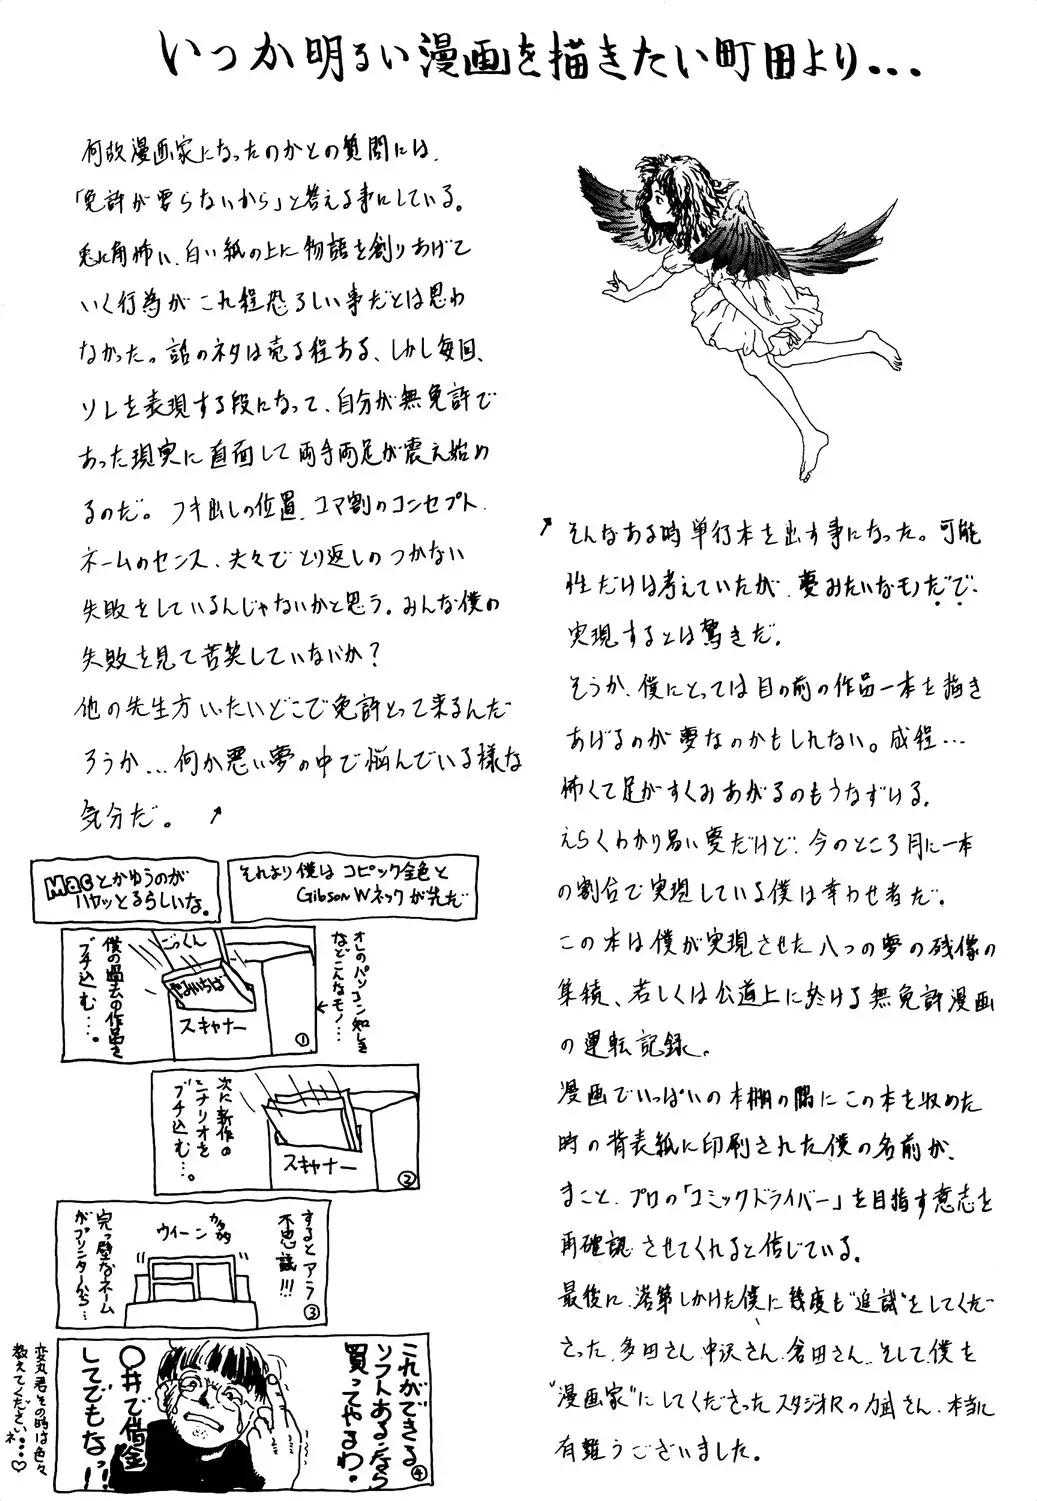 いつか明るい漫画を描きたい町田より...
何故漫画家になったのかとの質問には、
「免許が要らないから」と答える事にしている。
兎に角怖い、白い紙の上に物語を創りあげて
いく行為がこれ程恐ろしい事だとは思わ
なかった。話のネタは売る程ある、しかし毎回、
ソレを表現する段になって、自分が無免許で
あった現実に直面して両手両足が震え始め
るのだ。フキ出しの位置、コマ割のコンセプト、
ネームのセンス、夫々でとり返しのつかない
失敗をしているんじゃないかと思う。みんな僕の
失敗を見て苦笑していないか?
他の先生方いったいどこで免許とって来るんだ
ろうか...何か悪い夢の中で悩んでいる様な
気分だ。↗
↗そんなある時単行本を出す事になった。可能
性だけは考えていたが、夢みたいなモノだで、
実現するとは驚きだ。
そうか、僕にとっては目の前の作品一本を描き
あげるのが夢なのかもしれない。成程...
怖くて足がすくみあがるのもうなずける。
えらくわかり易い夢だけど、今のところ月に一本
の割合で実現している僕は幸わせ者だ。
この本は僕が実現させた八つの夢の残像の
集積、若しくは公道上に於ける無免許漫画
の運転記録。
漫画でいっぱいの本棚の隅にこの本を収めた
時の背表紙に印刷された僕の名前が、
まこと、プロの「コミックドライバー」を目指す意志を
再確認させてくれると信じている。
最後に、落第しかけた僕に幾度も"追試"をしてくだ
さった、多田さん、中沢さん、倉田さん、そして僕を
"漫画家"にしてくださったスタジオRの力武さん、本当に
有難うございました。
Macとかゆうのが
ハヤッとるらしいな。
それより僕はコピック金色と
GibsonWネックが先だ
オレのパソコン知しき
などこんなモノ...
僕の過去の作品を
ブチ込む...。
ごっくん
やみいちば
スキャナー
①
次に新作の
シナリオを
ブチ込む...。
スキャナー
②
するとアラ
不思議!!!
ウィーン
カタカタ
完っ璧なネーム
がプリンターから...
③
これができる
ソフトあるなら
買ってやるわ。
〇井で借金
してでもな!!
④
変丸君その時は色々
教えてくださいネ...♡